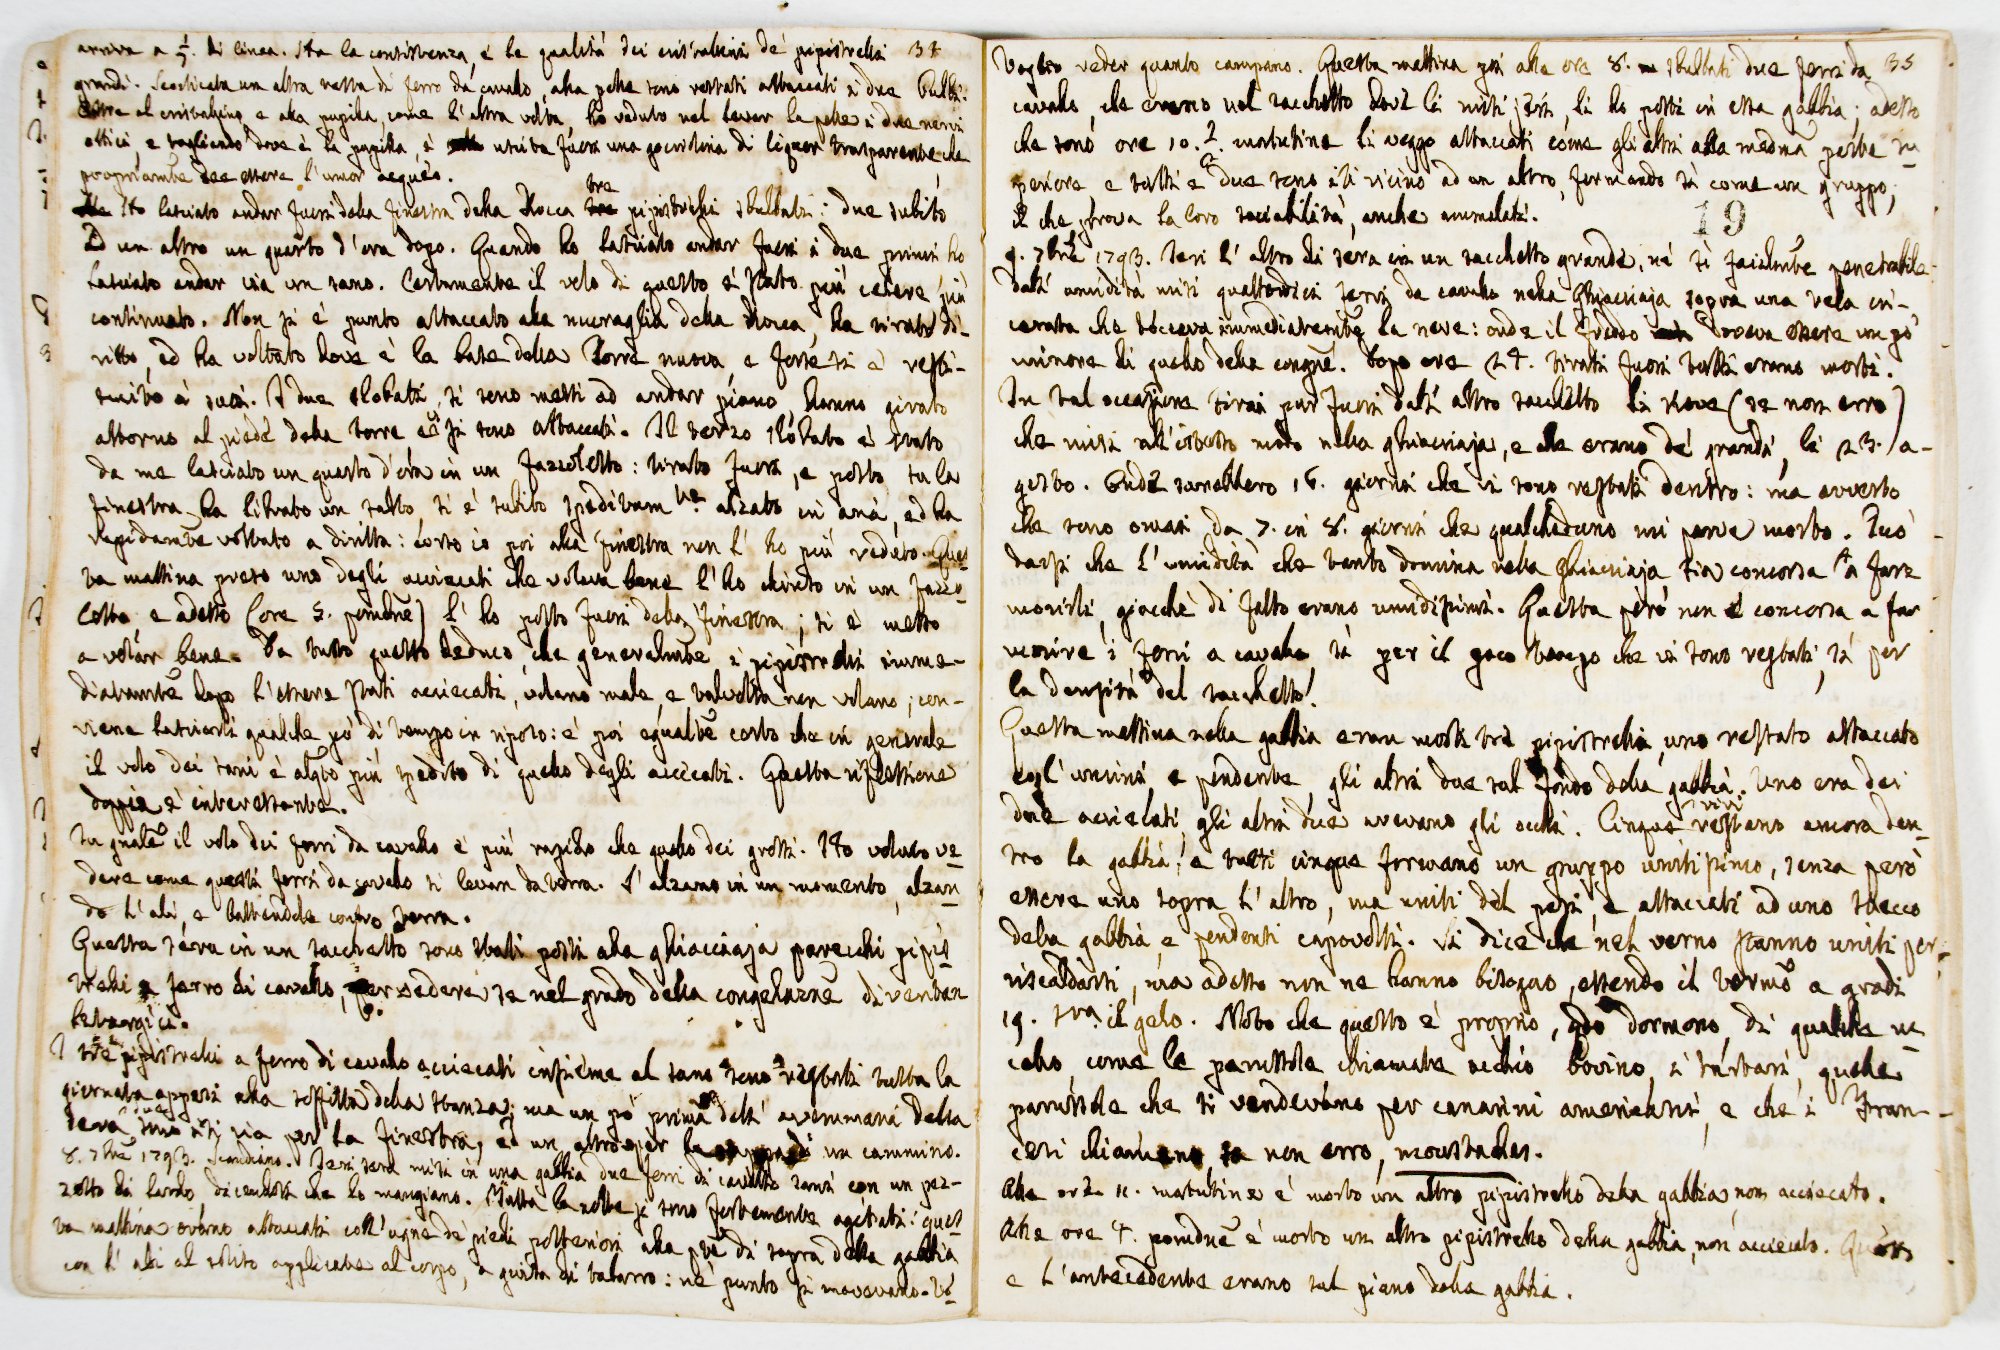 arriva a 1/2. di linea. Sta la consistenza, e le qualità dei cristallini de' pipistrelli 34
grandi. Scorticata un altra testa di ferro da cavallo, alla pelle sono restati attaccati i due bulbi.
Oltre al cristallino, e alla pupilla, come l'altra volta, ho veduto nel levar la pelle i due nervi
ottici, e tagliando dove è la pupilla, è uscita fuori una gocciolina di liquor trasparente che
propriamte dee essere l'umor acqueo.
Ho lasciato andar fuori dalla finestra della Rocca tre pipistrelli sbulbati: due subito
Ed un altro un quarto d'ora dopo. Quando ho lasciato andar fuori i due primi ho
lasciato andar via un sano. Certamente il volo di questo è stato più celere, più
continuato. Non si è punto attaccato alla muraglia della Rocca, ha tirato di-
ritto, ed ha voltato dove è la base della Torre nuova, e forse si è resti-
tuito a' suoi. I due slobati, si sono messi ad andar piano, hanno girato
attorno al piede della torre e si sono attaccati. Il terzo slobato è stato
da me lasciato un quarto d'ora in un fazzoletto: tirato fuori, e posto su la
finestra ha librato un salto, si è subito speditamte alzato in aria, ed ha
rapidamte voltato a diritta: corso io poi alla finestra non l'ho più veduto. Ques
ta mattina preso uno degli acciecati che volava bene l'ho chiuso in un fazzo-
letto e adesso (ore 5. pomdne) l'ho posto fuori della finestra; si è messo
a volar bene. Da tutto questo deduco, che generalmte i pipistrelli imme-
diatamte dopo l'essere stati acciecati, volano male, e talvolta non volano; con-
viene lasciarli qualche pò di tempo in riposo: è poi egualmte certo che in generale
il volo dei sani è alqto più spedito di quello degli acciecati. Questa riflessione
doppia è interessante.
In gnale il volo dei ferri da cavallo è più rapido che quello dei grossi. Ho voluto ve-
dere come questi ferri da cavallo si levan da terra. S'alzano in un momento, alzan
do l'ali, e battendole contro terra.
Questa sera in un sacchetto sono stati posti alla ghiacciaja parecchi pipis
trelli a ferro di cavallo, per vedere se nel grado della congelazne diventan
letargici.
I tre pipistrelli a ferro di cavallo acciecati insieme al sano sono restati tutta la
giornata appesi alla soffitta della stanza; ma un pò prima dell'avemmaria della
sera due sono iti via per la finestra, ed un altro per la di un cammino.
8. 7bre 1793. Scandiano. Jeri sera misi in una gabbia due ferri di cavallo sani con un pez-
zetto di lardo, dicendosi che lo mangiano. Tutta la notte si sono fortemente agitati: ques
ta mattina erano attaccati coll'ugne de' piedi posteriori alla pte di sopra della gabbia
con l'ali al solito applicate al corpo, a guisa di tabarro: nè punto si movevano. Vo-
Voglio veder quanto campano. Questa mattina poi alle ore 8. sbulbati due ferri da 35
cavallo, che erano nel sacchetto dove li misi jeri, li ho posti in essa gabbia; adesso
che sono ore 10. 1/2. matutine li veggo attaccati come gli altri alla medma parte su-
periore e tutti e due sono iti vicino ad un altro, formando sì come un gruppo;
il che prova la loro sociabilità, anche ammalati.
19
9. 7bre 1793. Jeri l'altro di sera in un sacchetto grande, nè sì facilmte penetrabile
dall'umidità misi quattordici ferri da cavallo nella Ghiacciaja sopra una tela in-
cerata che toccava immediatamte la neve: onde il freddo doveva essere un pò
minore di quello della congne. Dopo ore 24. tirati fuori tutti erano morti.
In tal occasione tirai pur fuori dall'altro sacchetto li nove (se non erro)
che misi nell'istesso modo nella ghiacciaja, e che erano de' grandi, li 23. a-
gosto. Onde sarebbero 16. giorni che vi sono restati dentro: ma avverto
che sono omai da 7. in 8. giorni che qualcheduno mi parve morto. Può
darsi che l'umidità che tanto domina nella Ghiacciaja sia concorsa a farz
morirli, giacchè di fatto erano umidissimi. Questa però non è concorsa a far
morire i ferri a cavallo, sì per il poco tempo che vi sono restati, sì per
la densità del sacchetto.
Questa mattina nella gabbia eran morti tre pipistrelli, uno restato attaccato
cogl'uncini, e pendente, gli altri due sul fondo della gabbia. Uno era dei
due acciecati, gli altri due avevano gli occhi. Cinque vivi restano ancora den-
tro la gabbia; e tutti cinque formano un gruppo unitissimo, senza però
essere uno sopra l'altro, ma uniti del pari, e attaccati ad uno stecco
della gabbia, e pendenti capovolti. Si dice che nel verno stanno uniti per
riscaldarsi, ma adesso non ne hanno bisogno, essendo il termo a gradi
19. sva il gelo. Noto che questo è proprio, qdo dormono, di qualche uc-
cello come le parussole chiamate occhio bovino, i turbari, quelle
parussole che si vendevano per canarini americani, e che i Fran-
cesi chiamano, se non erro, moustaches.
Alle ore 11. matutine è morto un altro pipistrello della gabbia, non acciecato.
Alle ore 4. pomdne è morto un altro pipistrello della gabbia, non acciecato. Questo
e l'antecedente erano sul piano della gabbia.